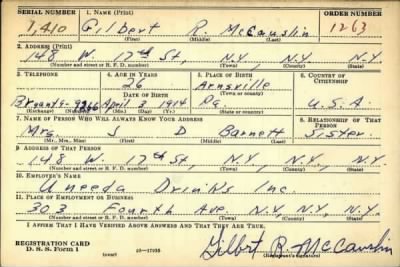 SERIAL NUMBER 1. NAME (Print) ORDER NUMBER
1,410 Gilbert R. McCauslin 1263
(First) (Middle) (Last)
2. ADDRESS (Print)
148 W. 17th St, N.Y. N.Y. N.Y.
(Number and street or R. F. D. number) (Town) (County) (State)
3. TELEPHONE 4. AGE IN YEARS 5. PLACE OF BIRTH 6. COUNTRY OF CITIZENSHIP
26 Arnsville
DATE OF BIRTH (Town or county)
Bryant9- April 3 1914 Pa. U.S.A.
(Exchange) (Number) (Mo.) (Day) (Yr.) (State or country)
7. NAME OF PERSON WHO WILL ALWAYS KNOW YOUR ADDRESS 8. RELATIONSHIP OF THAT PERSON
Mrs. S D Barnett Sister
(Mr., Mrs., Miss) (First) (Middle) (Last)
9. ADDRESS OF THAT PERSON
148 W. 17th St, N.Y. N.Y. N.Y.
(Number and street or R. F. D. number) (Town) (County) (State)
10. EMPLOYER'S NAME
Uneeda Drinks Inc.
11. PLACE OF EMPLOYMENT OR BUSINESS
303 Fourth Ave. N.Y. N.Y. N.Y.
(Number and street or R. F. D. number) (Town) (County) (State)
I AFFIRM THAT I HAVE VERIFIED ABOVE ANSWERS AND THAT THEY ARE TRUE.
REGISTRATION CARD
D. S. S. Form 1 (over) Gilbert R. McCauslin
(Registrant's signature)